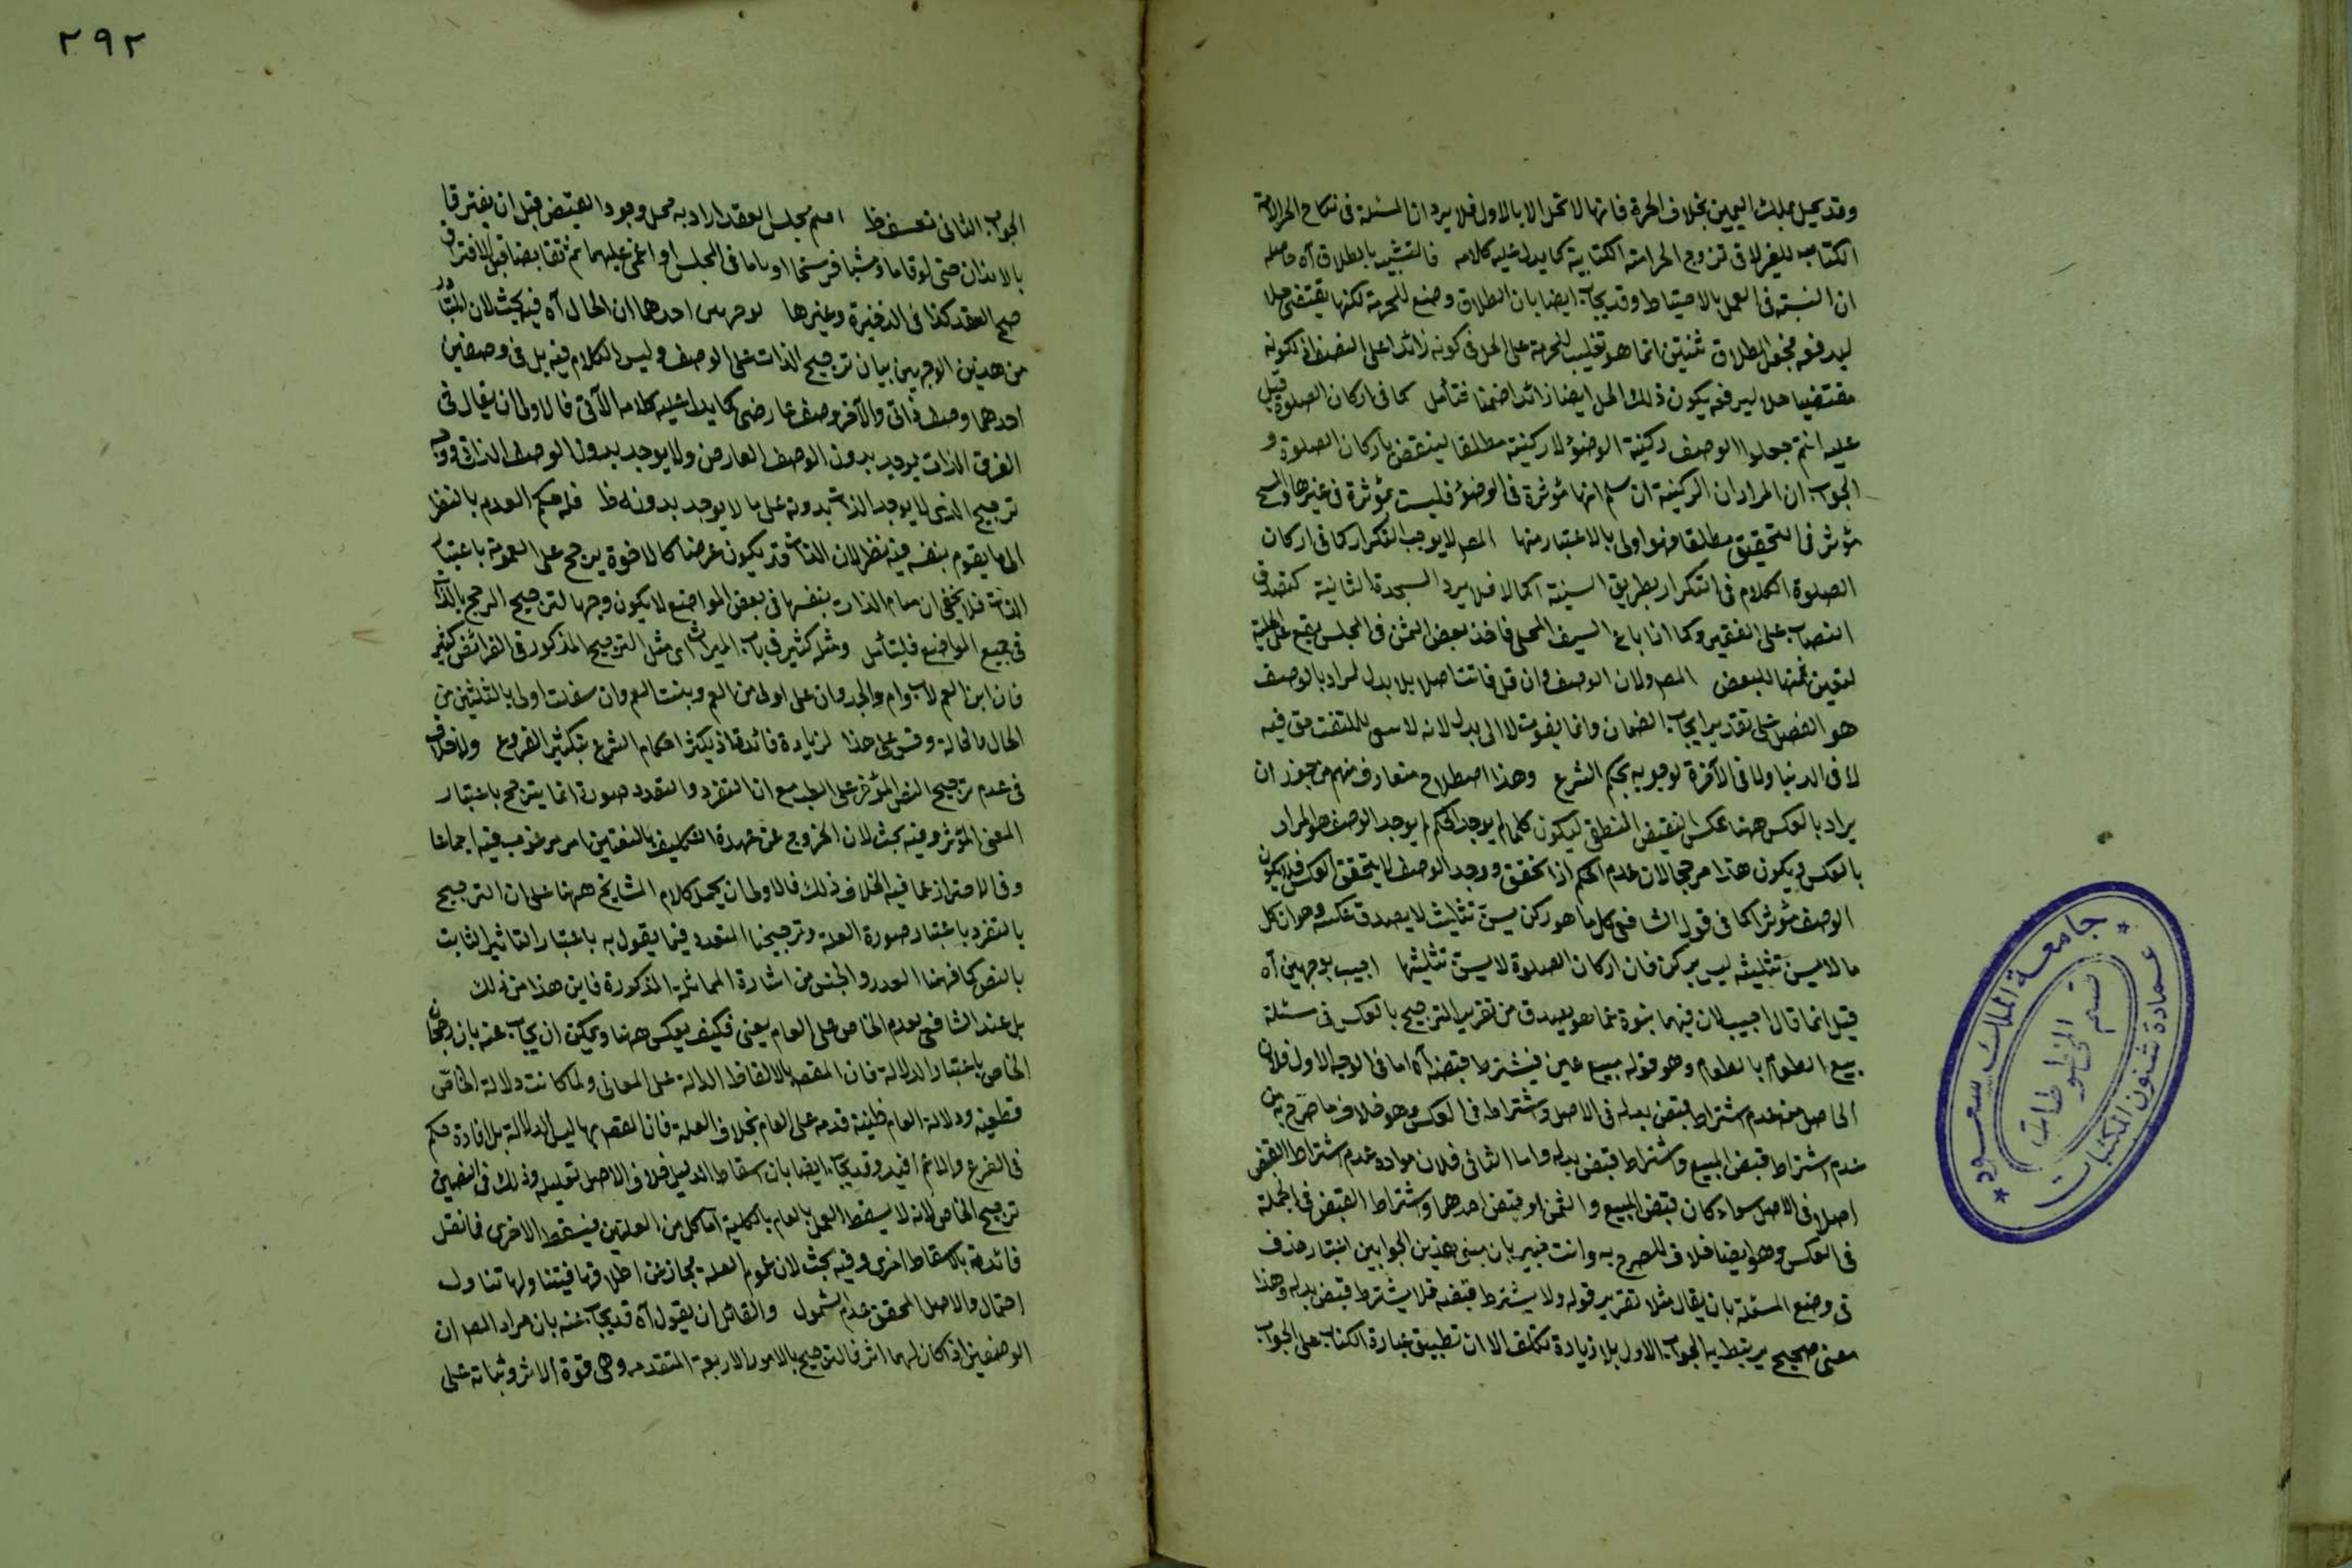 وقد يحل بملك اليمين بخلاف الحرة فانها لا تحل الا بالاول فلا يرد ان المسئلة فى نكاح الحر الامة
الكتابية للغير لا فى تزوج الحر امته الكتابية كما يدل عليه كلامه فالتشبيه بالطلاق آه حاصله
ان النسبة فى العمل بالاحتياط وقد يجاب ايضا بان الطلاق وضع للحرمة لكنها يقتضى حلا
ليرفعه فجعل الطلاق ثنتين انما هو تغليب للحرمة على الحل فى كونه زائدا على النصف اذ لكونه
مقتضيا حلا ليرفعه يكون ذلك الحل ايضا زائدا ضمنا فتأمل كما فى اركان الصلوة قيل
عليه انتم جعلوا الوصف ركنية الوضوء لا ركنية مطلقا لينتقض باركان الصلوة و
الجواب ان المراد ان الركنية ان سلم انها مؤثرة فى الوضوء فليست بمؤثرة فى غيرها والمسح
مؤثر فى التخفيف مطلقا فهو اولى بالاعتبار منها المص لا يوجب التكرار كما فى اركان
الصلوة الكلام فى التكرار بطريق السنية اكمالا فلا يرد السجدة الثانية كتصدق
النصاب على الفقير وكما اذا باع السيف المحلى فاخذ بعض الثمن فى المجلس يقع عن الحلية
لتعين ثمنها للبعض المص ولان الوصف وان قل فائت اصلا بلا بدل المراد بالوصف
هو الفضل على تقدير ايجاب الضمان وانما يفوت لا الى بدل لانه لا للمتلف حق فيه
لا فى الدنيا ولا فى الآخرة لوجوبه بحكم الشرع وهذا اصطلاح متعارف منهم من جوز ان
يراد بالعكس ههنا عكس النقيض المنطقى ليكون كلما لم يوجد الحكم لم يوجد الوصف هو المراد
بالعكس ويكون هذا مرجحا لان عدم الحكم اذا تحقق ووجد الوصف لا يتحقق العكس فلا يكون
الوصف مؤثرا كما فى قول الشافعى كل ما هو ركن يسن تثليثه لا يصدق عكسه وهو ان كل
ما لا يسن تثليثه ليس بركن فان اركان الصلوة لا يسن تثليثها اجيب بوجهين آه
قيل انما قال اجيب لان فيهما نبوة عما هو بصدده من تقرير الترجيح بالعكس فى مسئلة
بيع الطعام بالطعام وهو قوله مبيع عين فيشترط قبضه آه اما فى الوجه الاول فلان
الحاصل منه عدم اشتراط قبض بدله فى الاصل واشتراطه فى العكس وهو خلاف ما صرح به من
عدم اشتراط قبض المبيع واشتراط قبض بدله واما الثانى فلان مراده عدم اشتراط القبض
اصلا فى الاصل سواء كان قبض المبيع والثمن او قبض احدهما واشتراط القبض فى الجملة
فى العكس وهو ايضا خلاف المصرح به وانت خبير بان مبنى هذين الجوابين اعتبار حذف
فى وضع المسئلة بان يقال مثلا تقرير قوله ولا يشترط قبضه فلا يشترط قبض بدله وهذا
معنى صحيح يرتبط به الجواب الاول بلا زيادة تكلف الا ان تطبيق عبارة الكتاب على الجواب
جامعة الملك سعود
عمادة شئون المكتبات
قسم المخطوطات
٢٩٢
الجواب الثانى تعسف ظ اعلم مجلس العقد اراد به محل وجود القبض قبل ان يفترقا
بالابدان حتى لو قاما ومشيا فرسخا او ناما فى المجلس او اغمى عليهما ثم تقابضا قبل الافتراق
صح العقد كذا فى الذخيرة وغيرها لوجهين احدهما ان الحال آه فيه بحث لان المتبادر
من هذين الوجهين بيان ترجيح الذات على الوصف وليس الكلام فيه بل فى وصفين
احدهما وصف ذاتى والآخر وصف عارضى كما يدل عليه كلامه الآتى فالاولى ان يقال فى
الفرق الذات يوجد بدون الوصف العارض ولا يوجد بدون الوصف الذاتى ووجه
ترجيح الذى لا يوجد الذات بدونه على ما لا يوجد بدونه ظ فله حكم العدم بالنظر
الى ما يقوم بنفسه فيه نظر لان الذات قد يكون عرضا كالاخوة يرجح على العمومة باعتبار
الذات فلا يخفى ان قيام الذات بنفسها فى بعض المواضع لا يكون وجها لترجيح الرجح بالذات
فى جميع المواضع فليتأمل ومثله كثير فى باب الميراث اى مثل الترجيح المذكور فى الفرائض كثير
فان ابن العم لاب وام والجد وان على اولى من العم وبنت العم وان سفلت اولى بالثلثين من
الخال والخالة وقس على هذا لزيادة فائدة اذ يكثر احكام الشرع بتكثير الفروع ولا خلاف
فى عدم ترجيح النص الموجز على المطنب مع ان التفرد والتعدد صورة انما يترجح باعتبار
المعنى المؤثر وفيه بحث لان الخروج عن عهدة التكليف باليقين امر مرغوب فيه اجماعا
وفى الاحتراز عما فيه الخلاف ذلك فالاولى ان يحمل كلام المشايخ ههنا على ان الترجيح
بالتفرد باعتبار صورة العلة وترجيحنا المتعدد فيما يقول به باعتبار التاثير الثابت
بالنص كما فهمنا القدر والجنس من اشارة المماثلة المذكورة فاين هذا من ذلك
بل عند الشافعى يقدم الخاص على العام يعنى فكيف يعكس ههنا ويمكن ان يجاب عنه بان رجحان
الخاص باعتبار الدلالة فان المقص بالالفاظ الدلالة على المعانى ولما كانت دلالة الخاص
قطعية ودلالة العام ظنية قدم على العام بخلاف العلة فان المقص بها ليس الدلالة بل افادة حكم
فى الفرع والاعم افيد وقد يجاب ايضا بان اسقاط الدليل خلاف الاصل تقليله وذلك فى النصين
ترجيح الخاص لانه لا يسقط العمل بالعام بالكلية اما كل من العلتين فيسقط الاخرى فما نقل
فائدة باسقاط اخرى وفيه بحث لان عموم العلة مجاز عن اطلاقها فيتناولها تناول
احتمال والاصل المحقق عدم الشمول وللقائل ان يقول آه قد يجاب عنه بان مراد المص ان
الوصفين اذا كان لهما اثر فالترجيح بالامور الاربعة المتقدمة وهى قوة الاثر وثباته على